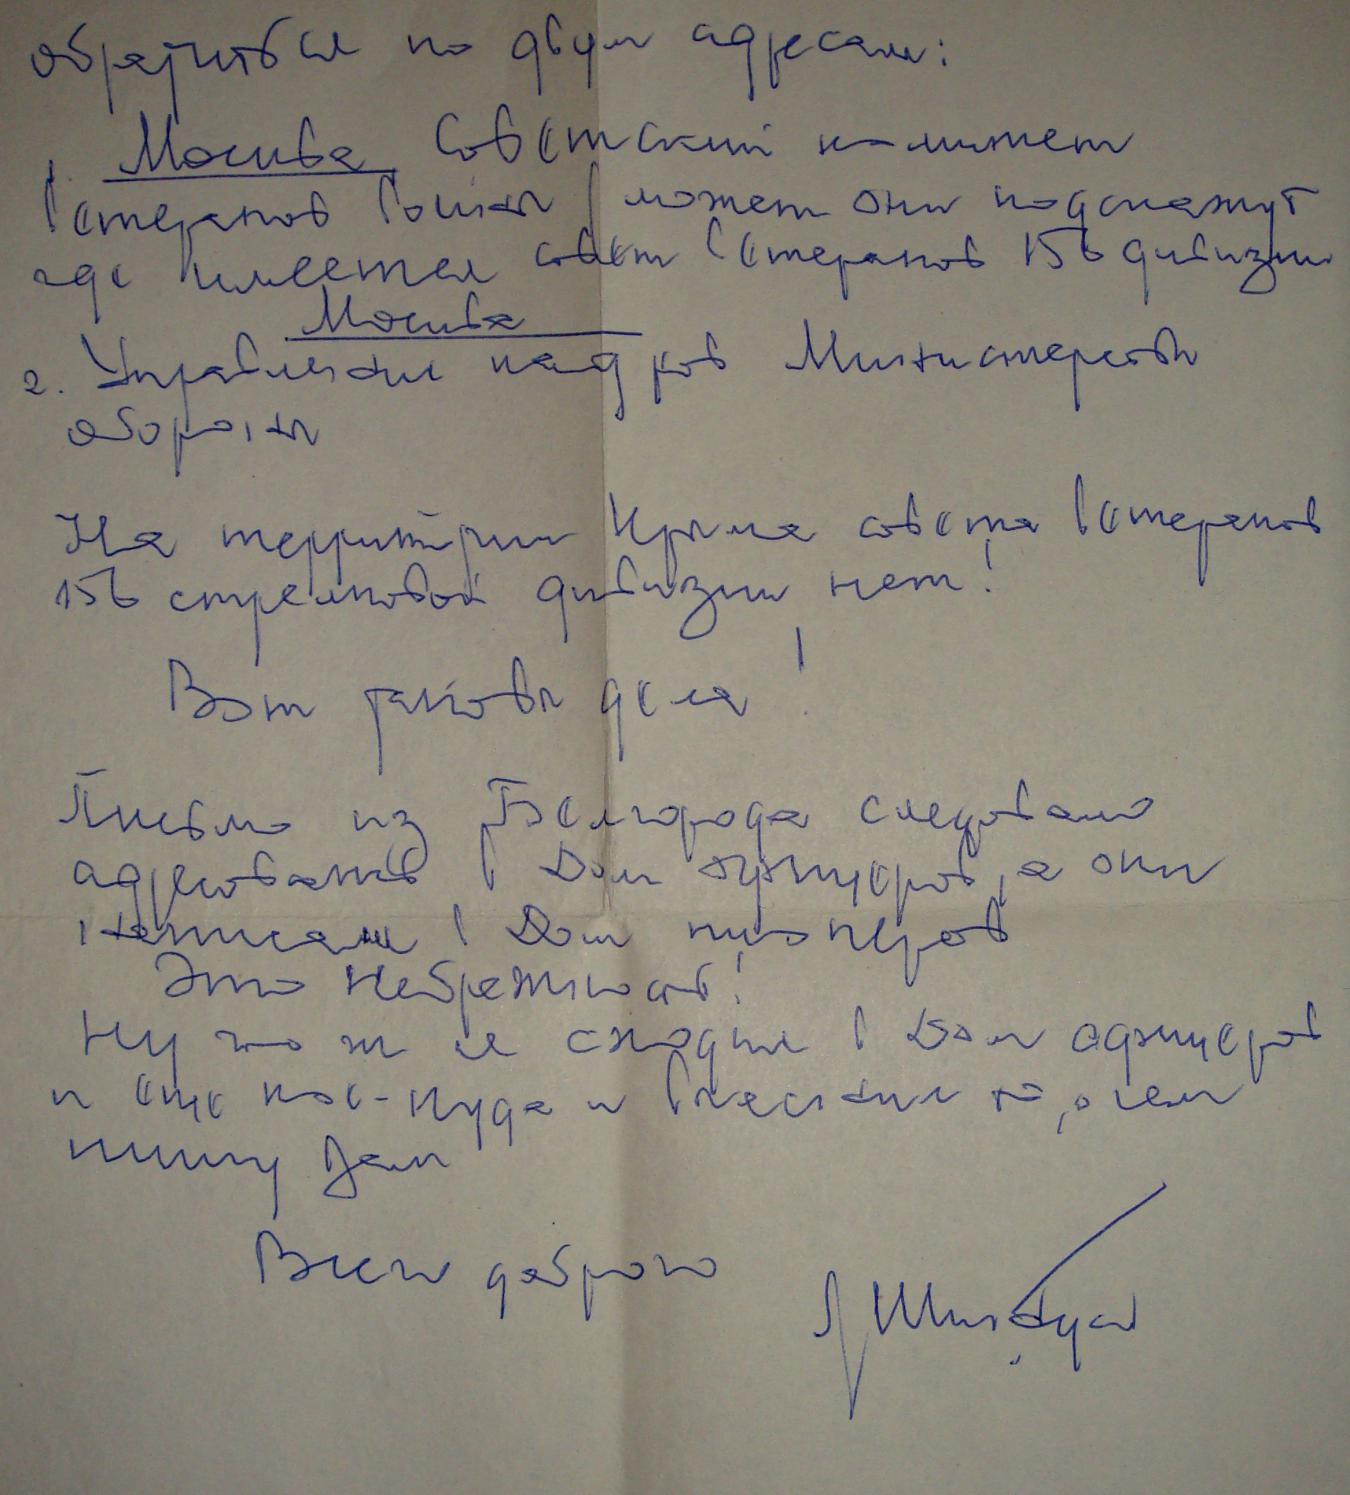 обратиться по двум адресам:
1. Москва Советский комитет
ветеранов войны (может они подскажут
где имеется совет ветеранов 156 дивизии
Москва
2. Управление кадров Министерства
обороны
На территории Крыма совета ветеранов
156 стрелковой дивизии нет!
Вот таковы дела!
Письмо из Белгорода следовало
адресовать в Дом офицеров, а они
написали в Дом пионеров
Это небрежность!
Ну что ж я сходил в Дом офицеров
и еще кое-куда и выяснил то, о чем
пишу Вам
Всего доброго